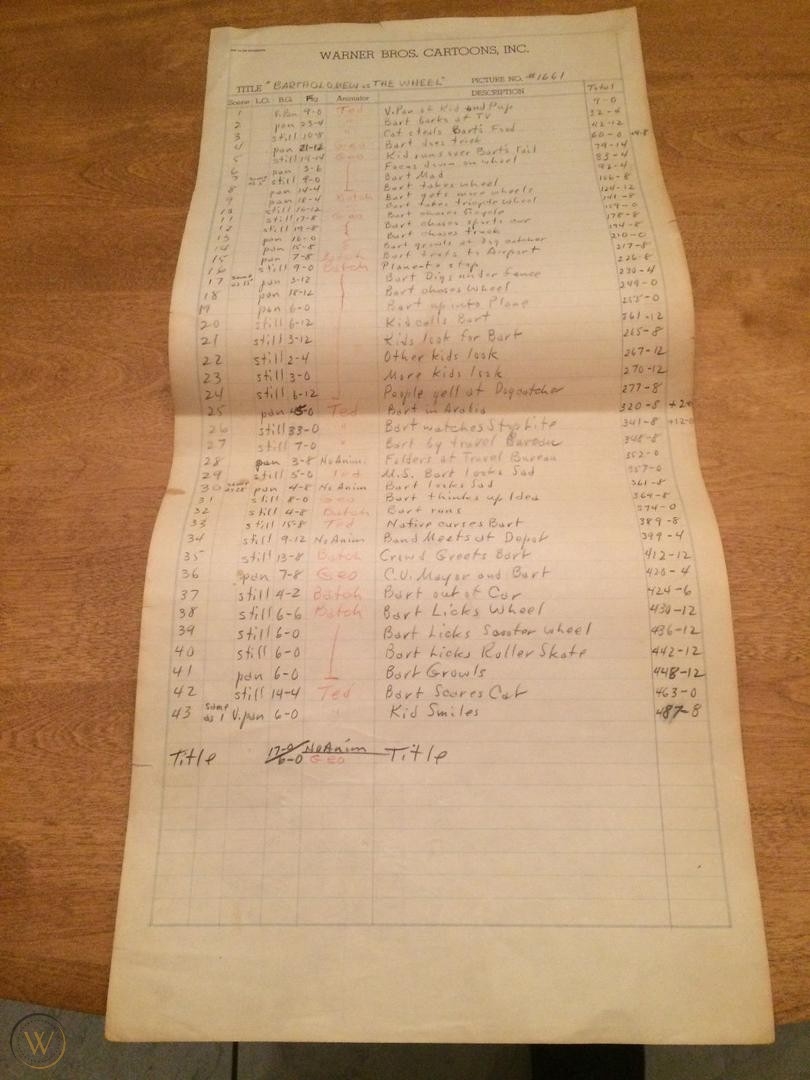 WARNER BROS. CARTOONS, INC.
TITLE "BARTHOLOMEW vs THE WHEEL" PICTURE NO. #1661
Scene L.O. B.G. Ftg Animator DESCRIPTION Total
1 V.Pan 9-0 Ted V.Pan of Kid and Pup 9-0
2 pan 23-4 Bart barks at TV 32-4
3 still 10-8 Cat steals Bart's Food 42-12
4 pan 21-12 Geo Bart does trick 60-0
5 still 14-14 Geo Kid runs over Bart's Tail 79-14
6 pan 3-6 Focus down on wheel 83-4
7 same as 5 still 9-0 Bart Mad 92-4
8 pan 14-4 Bart takes wheel 106-8
9 pan 18-4 Batch Bart gets more wheels 124-12
10 still 16-12 Bart takes tricycle wheel 141-8
11 still 17-8 Geo Bart chases Bicycle 159-0
12 still 19-8 Bart chases sports car 178-8
13 pan 16-0 Bart chases truck 194-8
14 pan 15-8 Bart growls at Dog catcher 210-0
15 pan 7-8 Batch Bart trots to Airport 217-8
16 still 9-0 Batch Plane to stop 226-8
17 same as 15 pan 3-12 Bart Digs under fence 230-4
18 pan 18-12 Bart chases Wheel 249-0
19 pan 6-0 Bart up into Plane 255-0
20 still 6-12 Kid calls Bart 261-12
21 still 3-12 Kids look for Bart 265-8
22 still 2-4 Other kids look 267-12
23 still 3-0 More Kids look 270-12
24 still 6-12 People yell at Dogcatcher 277-8
25 pan 45-0 Ted Bart in Arabia 320-8
26 still 33-0 " Bart watches 341-8 +12-0
27 still 7-0 " Bart by travel Bureau 348-8
28 pan 3-8 No Anim. Folders at Travel Bureau 352-0
29 still 5-0 Ted M.S. Bart looks Sad 357-0
30 same as 28 pan 4-8 No Anim Bart looks Sad 361-8
31 still 8-0 Geo Bart thinks up Idea 369-8
32 still 4-8 Batch Bart runs 374-0
33 still 15-8 Ted Native curses Bart 389-8
34 still 9-12 No Anim Band Meets at Depot 399-4
35 still 13-8 Batch Crowd Greets Bart 412-12
36 pan 7-8 Geo C.U. Mayor and Bart 420-4
37 still 4-2 Batch Bart out of Car 424-6
38 still 6-6 Batch Bart Licks Wheel 430-12
39 still 6-0 Bart Licks Scooter wheel 436-12
40 still 6-0 Bart Licks Roller Skate 442-12
41 pan 6-0 Bart Growls 448-12
42 still 14-4 Ted Bart Scares Cat 463-0
43 same as 1 V.pan 6-0 " Kid Smiles 487-8
Title 17-0 No Anim Title
6-0 GEO
W